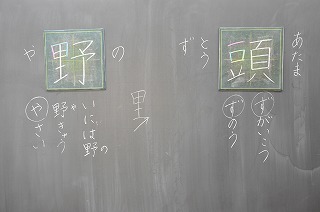 あたま
頭
とう
ず
ずがいこつ
ずのう
の
野
や
里
いには野
の
野きゅう
や
やさい